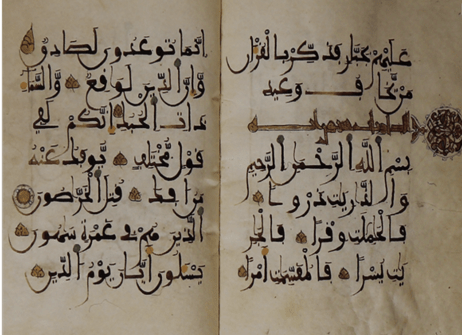 عليهم بجبار فذكر بالقران
من يخاف وعيد
بسم الله الرحمن الرحيم
والذريت ذروا
فالحملت وقرا فالجر
يت يسرا فالمقسمت امرا
انما توعدون لصادق
وان الدين لوقع والسما
ذات الحبك انكم لفي
قول مختلف يوفك عنه
من افك قتل الخرصون
الذين هم في غمرة سهون
يسلون ايان يوم الدين